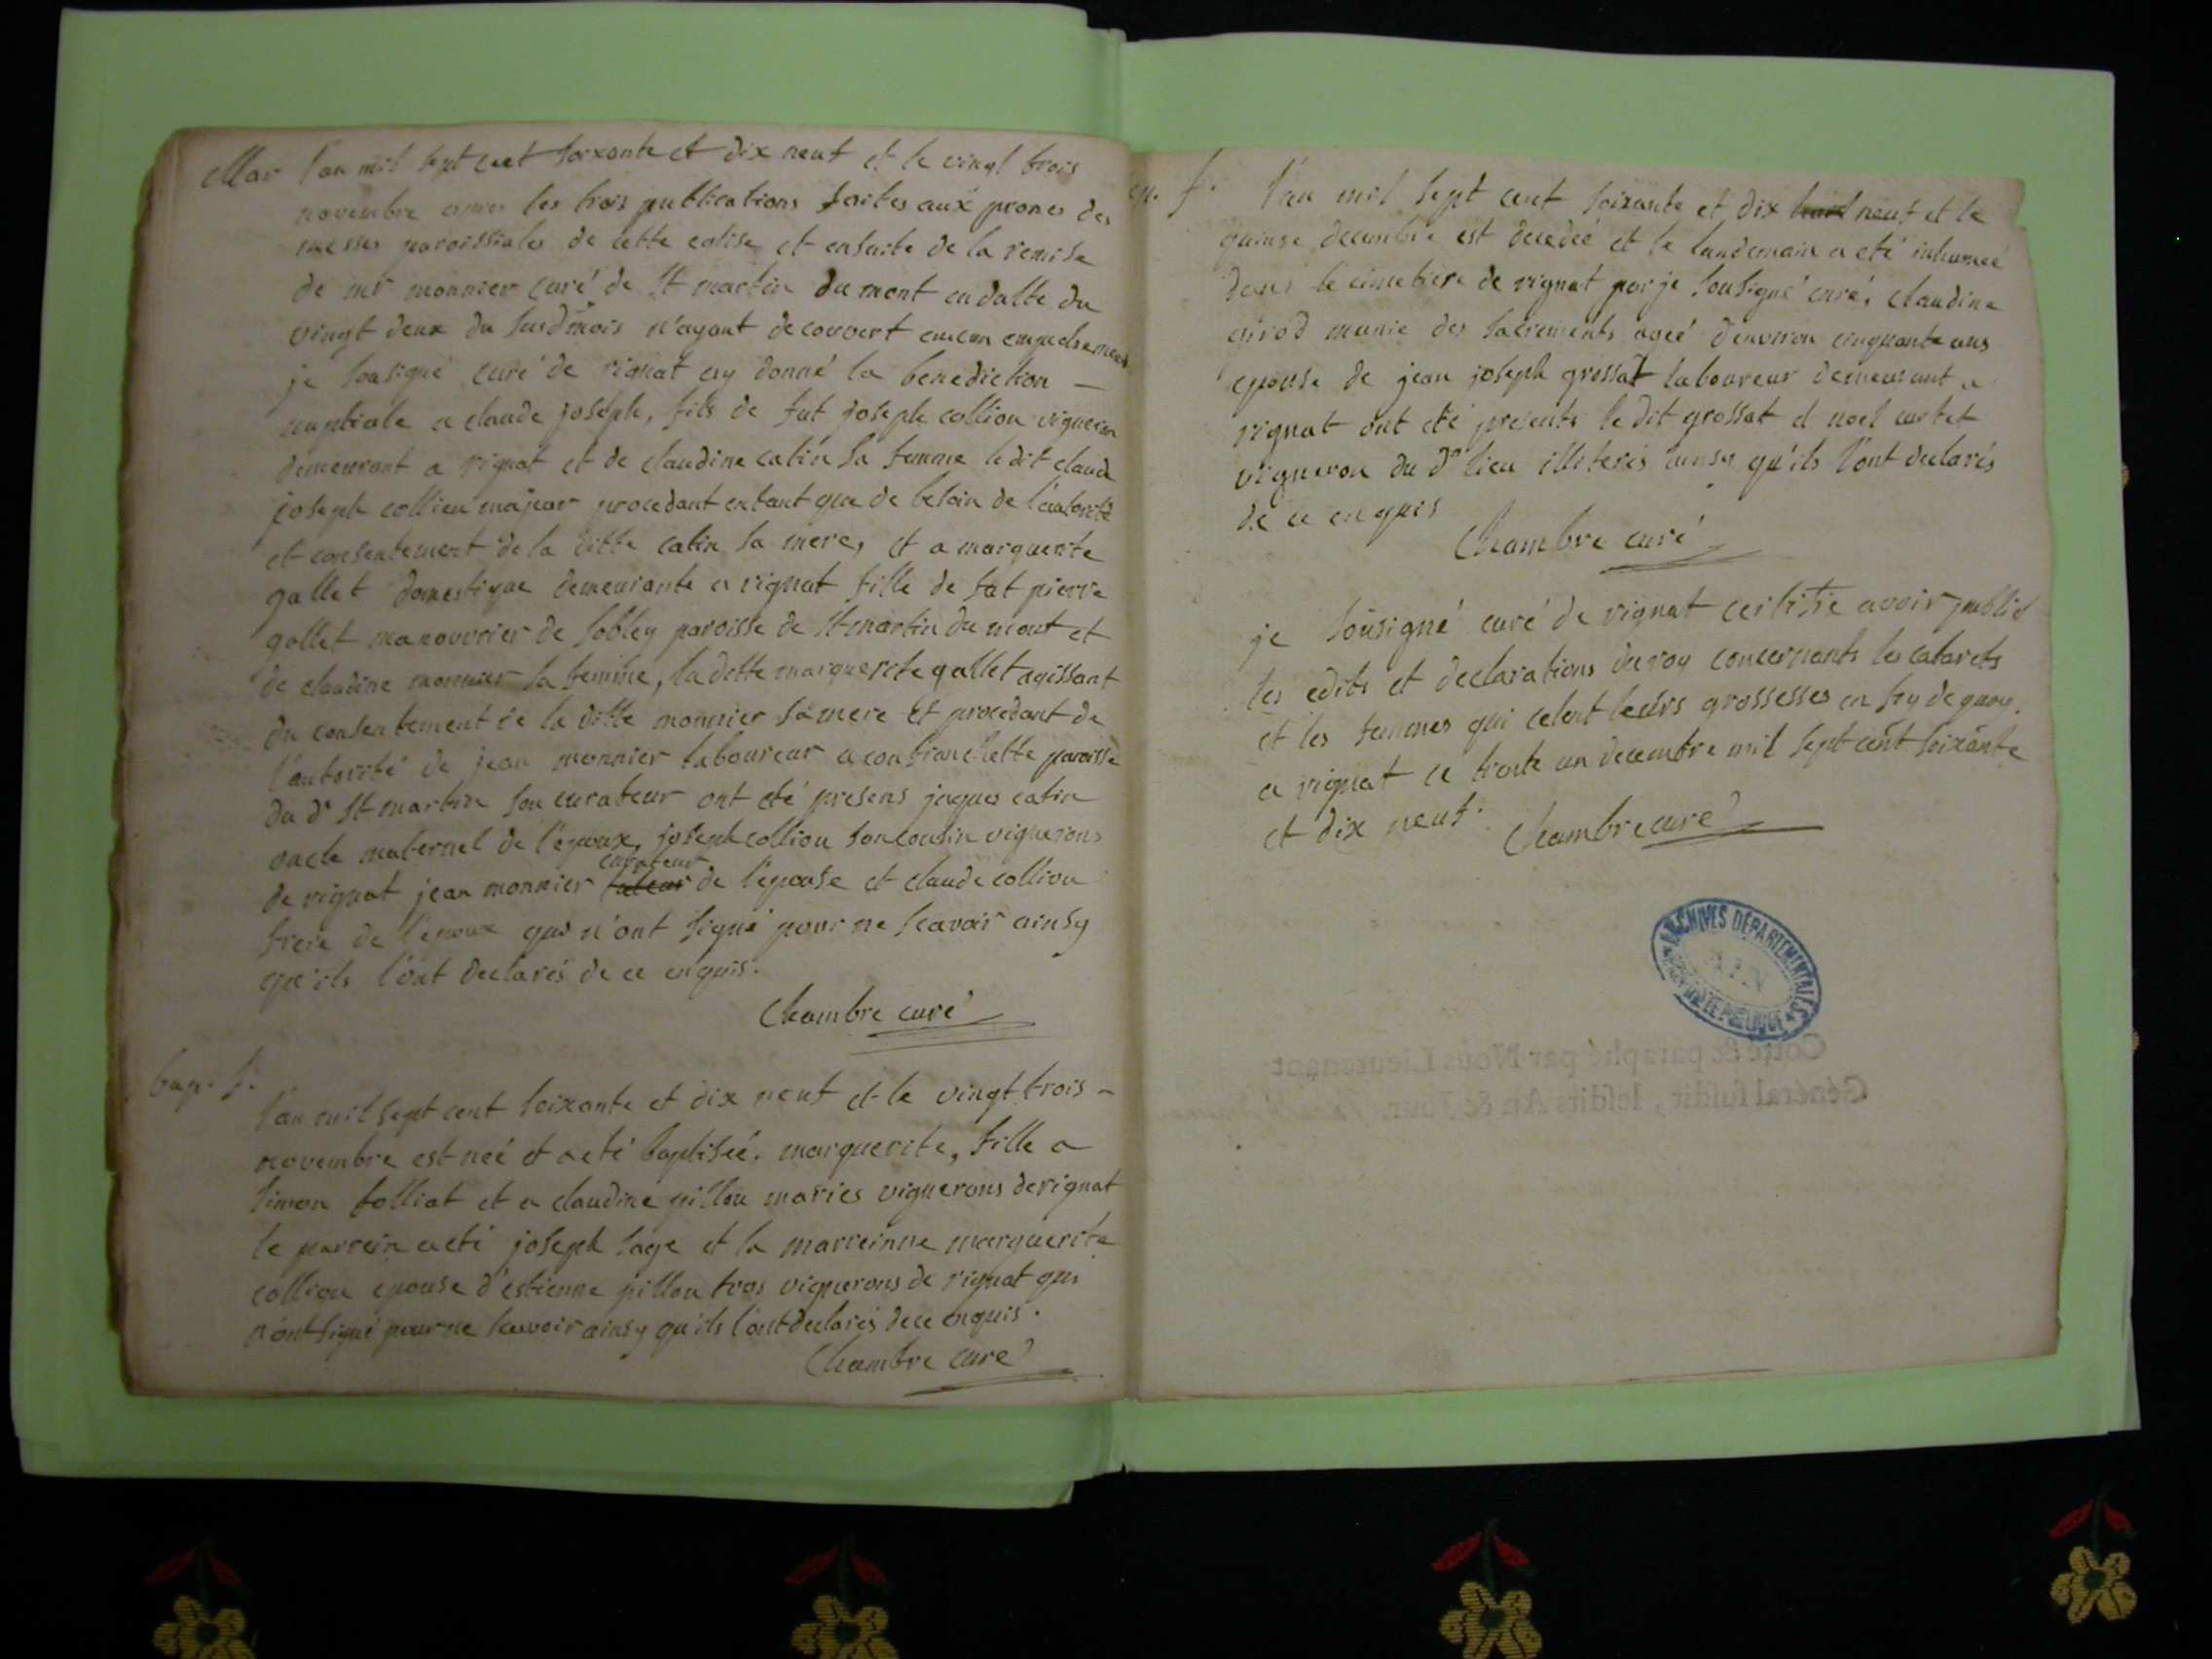 Mar l'an mil sept cent soixante et dix neuf et le vingt trois
novembre apres les trois publications faites aux prones des
messes paroissiales de cette eglise et ensuite de la remise
de mr monnier curé de st martin du mont en datte du
vingt deux du susd mois n'ayant decouvert aucun empechement
je sousigné curé de rignat ay donné la benediction —
nuptiale a claude joseph, fils de fut joseph collion vigneron
demeurant a rignat et de claudine catin sa femme ledit claude
joseph collion majeur procedant entant que de besoin de l'autorité
et consentement de la ditte catin sa mere, et a marguerite
gallet domestique demeurante a rignat fille de fut pierre
gallet manouvrier de soblay paroisse de st martin du mont et
de claudine monnier sa femme, la ditte marguerite gallet agissant
du consentement de la ditte monnier sa mere et procedant de
l'autorité de jean monnier laboureur a confranc ditte paroisse
du dt st martin son curateur ont eté presens jaques catin
oncle maternel de l'epoux, joseph collion son cousin vignerons
de rignat jean monnier tuteur curateur de l'epouse et claude collion
frere de l'epoux qui n'ont signé pour ne scavoir ainsy
qu'ils l'ont declarés de ce enquis.
Chambre curé
bap. f.
l'an mil sept cent soixante et dix neuf et le vingt trois -
novembre est neé et a eté baptiseé, marguerite, fille a
simon folliat et a claudine pillon mariés vignerons de rignat
le parrein a eté joseph sage et la marreinne marguerite
collion epouse d'estienne pillon tous vignerons de rignat qui
n'ont signé pour ne scavoir ainsy qu'ils l'ont declarés de ce enquis.
Chambre curé
ep. f. l'an mil sept cent soixante et dix huit neuf et le
quinse decembre est decedeé et le landemain a eté inhumeé
dans le cimetiere de rignat par je sousigné curé, claudine
girod munie des sacrements ageé d'environ cinquante ans
epouse de jean joseph grossat laboureur demeurant a
rignat ont eté presents le dit grossat et noel curtet
vigneron du dt lieu illiterés ainsy qu'ils l'ont declarés
de ce enquis
Chambre curé
je sousigné curé de rignat certifie avoir publié
les edits et declarations du roy concernants les cabarets
et les femmes qui celent leurs grossesses en foy de quoy.
a rignat ce trente un decembre mil sept cent soixante
et dix neuf.
Chambre curé
ARCHIVES DÉPARTEMENTALES
AIN
Cotté & paraphé par Nous Lieutenant
Général susdit, lesdits An & Jour.